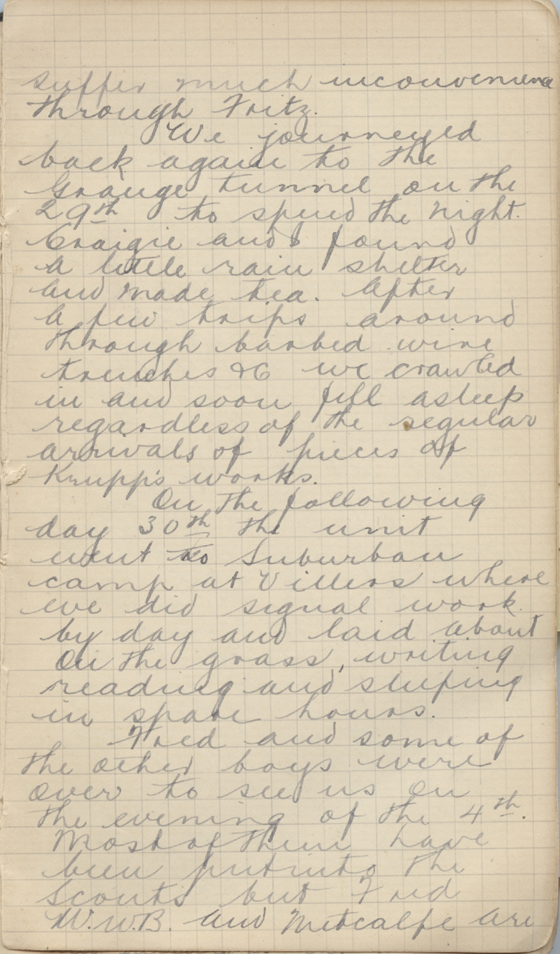 suffer much inconvenience
through Fritz.
We journeyed
back again to the
Grange tunnel on the
29th to spend the night.
Craigie and I found
a little rain shelter
and made tea. After
a few trips around
through barbed wire
trenches &c we crawled
in and soon fell asleep
regardless of the regular
arrivals of pieces of
Krupp's works.
On the following
day 30th the unit
went to Suburban
camp at Villers where
we did signal work
by day and laid about
on the grass, writing
reading and sleeping
in spare hours.
Fred and some of
the other boys were
over to see us on
the evening of the 4th.
Most of them have
been put into the
Scouts but Fred
W.W.B. and Metcalfe are